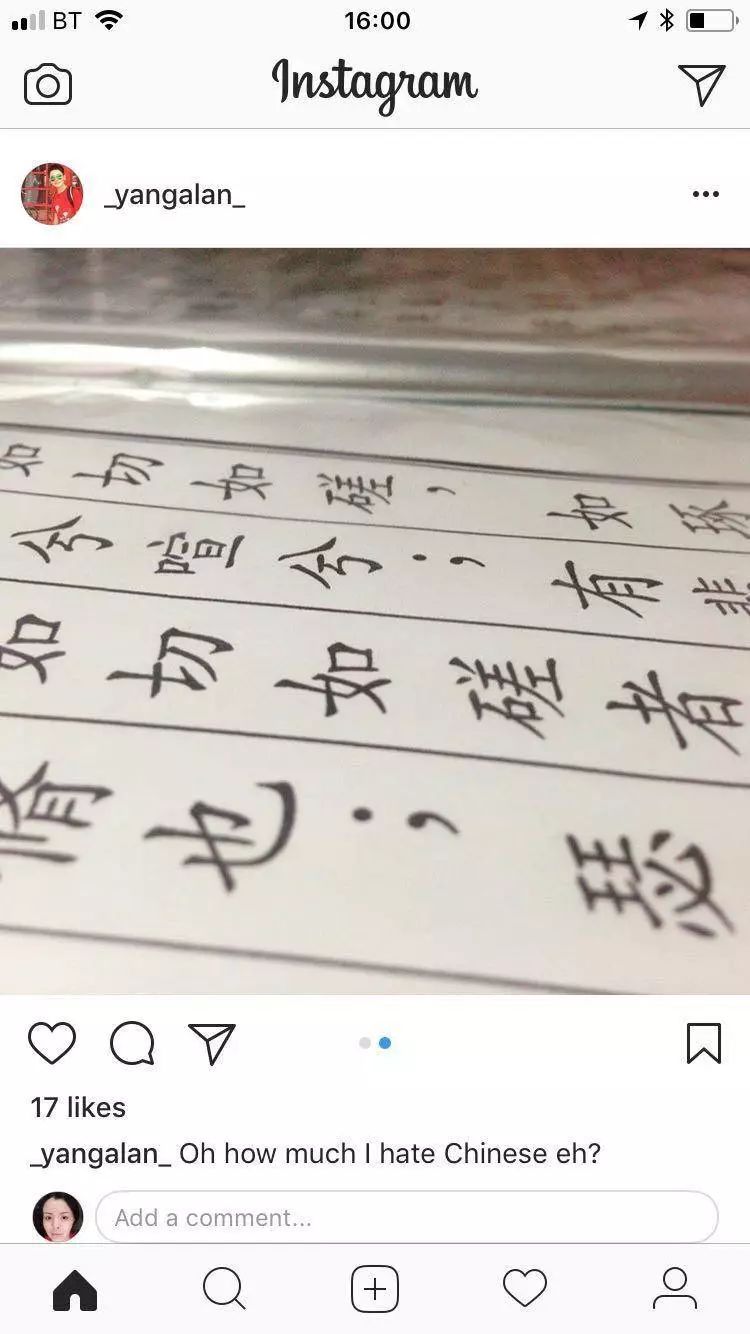 BT
16:00
Instagram
_yangalan_
如切如磋，如琢
兮喧兮；有
如切如磋者
脩也；瑟
17 likes
_yangalan_ Oh how much I hate Chinese eh?
Add a comment...